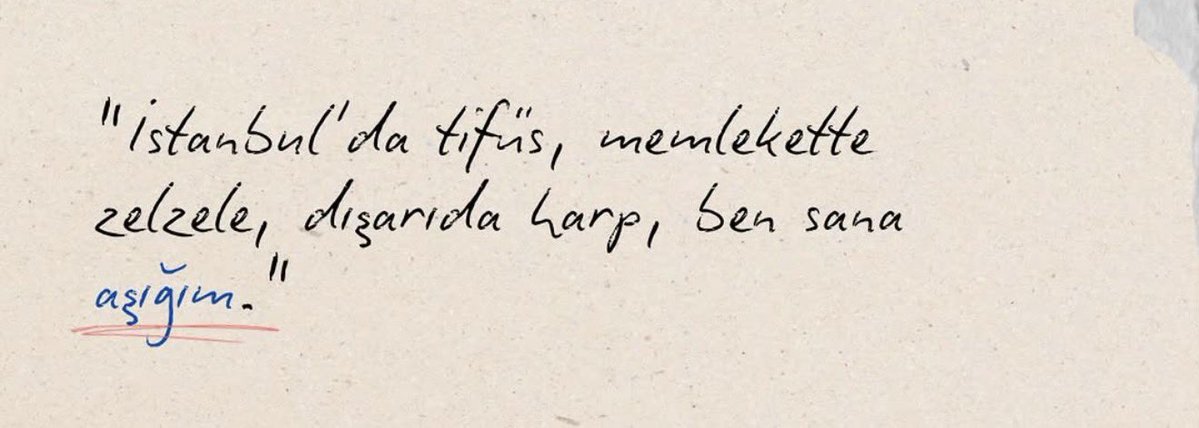 "İstanbul'da tifüs, memlekette
zelzele, dışarıda harp, ben sana
aşığım."